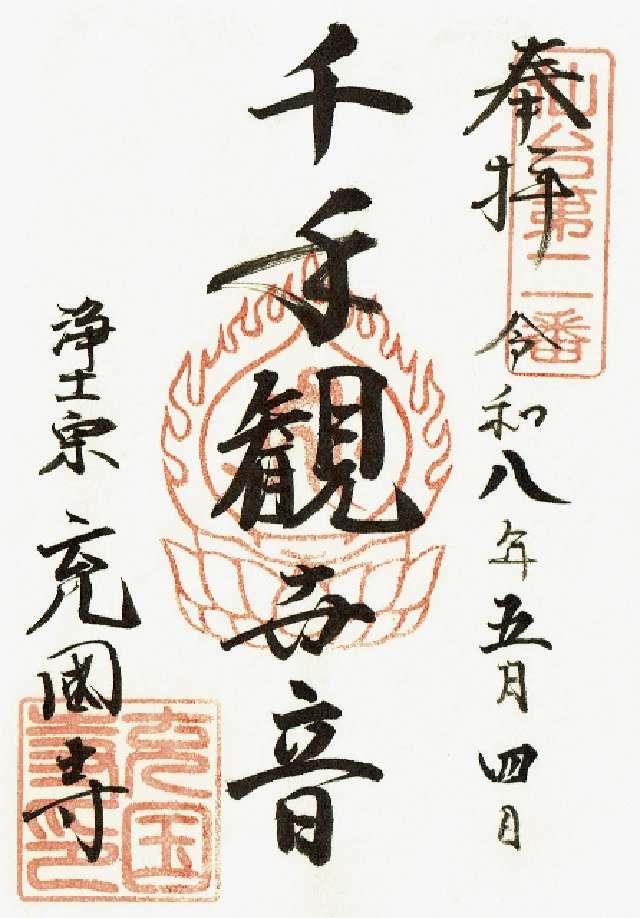 仙台第二一番
奉拝 令和八年五月四日
千手観世音
浄土宗 充國寺
充国
寺印